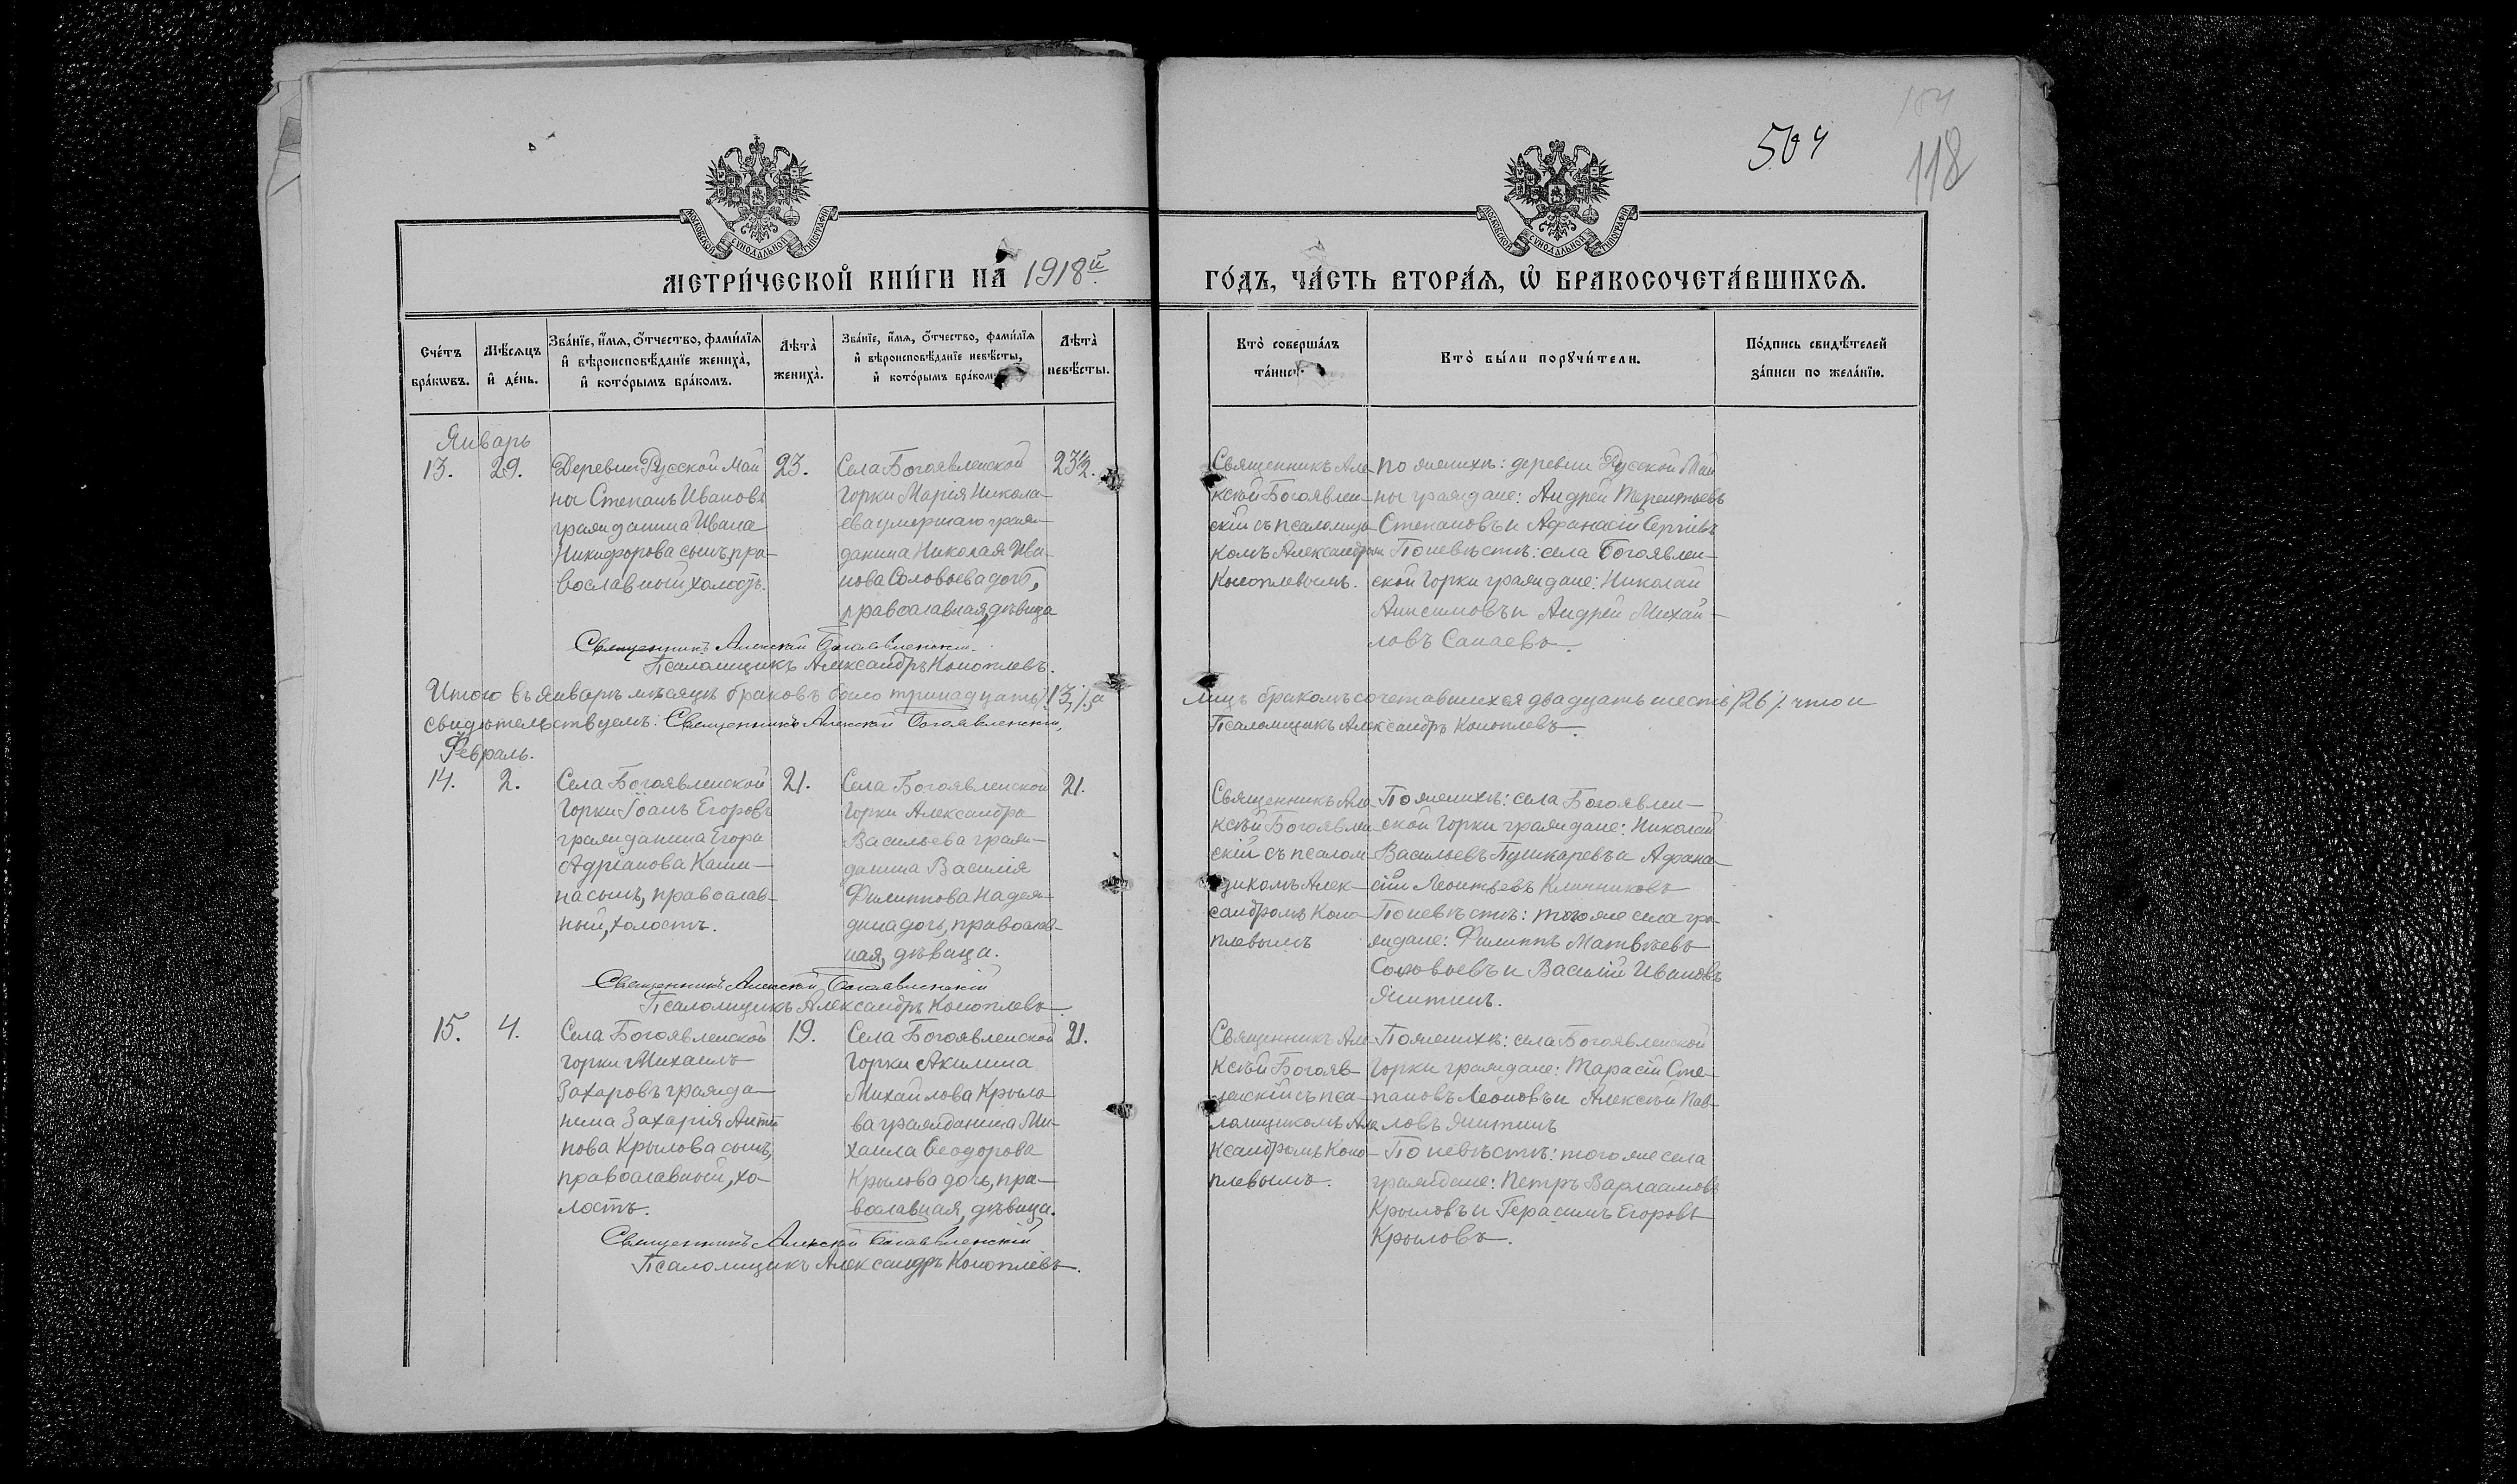 504
184
118
МОСКОВСКОЙ СѴНОДАЛЬНОЙ ТИПОГРАФІИ
МОСКОВСКОЙ СѴНОДАЛЬНОЙ ТИПОГРАФІИ
МЕТРИ́ЧЕСКОЙ КНИ́ГИ НА̀ 1918й
ГО́ДЪ, ЧА́СТЬ ВТОРА́Ѧ, Ѡ҆ БРАКОСОЧЕТА́ВШИХСѦ.
Сче́тъ бра́кѡвъ.
Мѣ́сѧцъ и҆ де́нь.
Зва́нїе, и҆́мѧ, ѻ҆́тчество, фами́лїѧ и҆ вѣроисповѣ́данїе жениха̀, и҆ кото́рымъ бра́комъ.
Лѣта̀ жениха̀.
Зва́нїе, и҆́мѧ, ѻ҆́тчество, фами́лїѧ и҆ вѣроисповѣ́данїе невѣ́сты, и҆ кото́рымъ бра́комъ
Лѣта̀ невѣ́сты.
Кто̀ соверша́лъ
Кто̀ бы́ли порꙋчи́тели.
По́дпись свидѣ́телей за́писи по жела́нїю.
Январь
13.
29.
Деревни Русской Май
ны Степанъ Ивановъ
гражданина Ивана
Никифорова сынъ, пра-
вославный, холостъ.
23.
Села Богоявленской
Горки Марія Никола-
ева умершаго граж-
данина Николая Ива-
нова Соловьева дочь,
православная, дѣвица
23½.
Священникъ Але
ксѣй Богоявлен-
скій съ псаломщи-
комъ Александромъ
Коноплевымъ.
По женихѣ: деревни Русской Май
ны граждане: Андрей Терентьевъ
Степановъ и Афанасій Сергѣевъ
По невѣстѣ: села Богоявлен-
ской Горки граждане: Николай
Анисимовъ и Андрей Михай-
ловъ Санаевъ.
Священникъ Алексѣй Богоявленскій.
Псаломщикъ Александръ Коноплевъ.
Итого въ Январѣ мѣсяцѣ браковъ было тринадцать /13/, а
лицъ бракомъ сочетавшихся двадцать шесть /26/. что и
свидѣтельствуемъ: Священникъ Алексѣй Богоявленскій,
Псаломщикъ Александръ Коноплевъ.
Февраль.
14.
2.
Села Богоявленской
Горки Іоанъ Егоровъ
гражданина Егора
Адріанова Каши-
на сынъ, православ-
ный, холостъ.
21.
Села Богоявленской
Горки Александра
Васильева граж-
данина Василія
Филиппова Надеж-
дина дочь, православ-
ная, дѣвица.
21.
Священникъ Але-
ксѣй Богоявлен-
скій съ псалом-
щикомъ Алек-
сандромъ Коно-
плевымъ
По женихѣ: села Богоявлен-
ской Горки граждане: Николай
Васильевъ Пушкаревъ и Афана-
сій Леонтьевъ Клинниковъ
По невѣстѣ: того же села гра-
ждане: Филиппъ Матвѣевъ
Соловьевъ и Василій Ивановъ
Янитинъ.
Священникъ Алексѣй Богоявленскій
Псаломщикъ Александръ Коноплевъ
15.
4.
Села Богоявленской
Горки Михаилъ
Захаровъ гражда-
нина Захарія Анти
пова Крылова сынъ,
православный, хо-
лостъ.
19.
Села Богоявленской
Горки Акилина
Михайлова Крыло
ва гражданина Ми-
хаила Ѳеодорова
Крылова дочь, пра-
вославная, дѣвица.
21.
Священникъ Але-
ксѣй Богояв-
ленскій съ пса-
ломщикомъ Але
ксандромъ Коно-
плевымъ.
По женихѣ: села Богоявленской
Горки граждане: Тарасій Сте-
пановъ Леоновъ и Алексѣй Пав-
ловъ Янитинъ
По невѣстѣ: того же села
граждане: Петръ Варлаамовъ
Крыловъ и Герасимъ Егоровъ
Крыловъ.
Священникъ Алексѣй Богоявленскій
Псаломщикъ Александръ Коноплевъ.